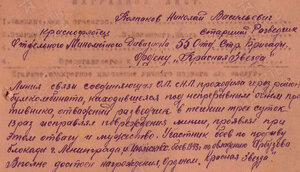 Колпаков Николай Васильевич
Красноармеец старший Разведчик
Отдельного Минометного Дивизиона 55 Отд. Стр. Бригады.
Ордену "Красная Звезда"
Линия связи соединяющая ОП с НП проходила через район
находившегося под непрерывным огнем про-
тивника, отважный разведчик в течение трех суток
раз исправлял повреждения линии, проявляя при
этом отвагу и мужество. Участник боев по прорыву
блокады г. Ленинграда и
Вполне достоин награждения орденом, "Красная Звезда"